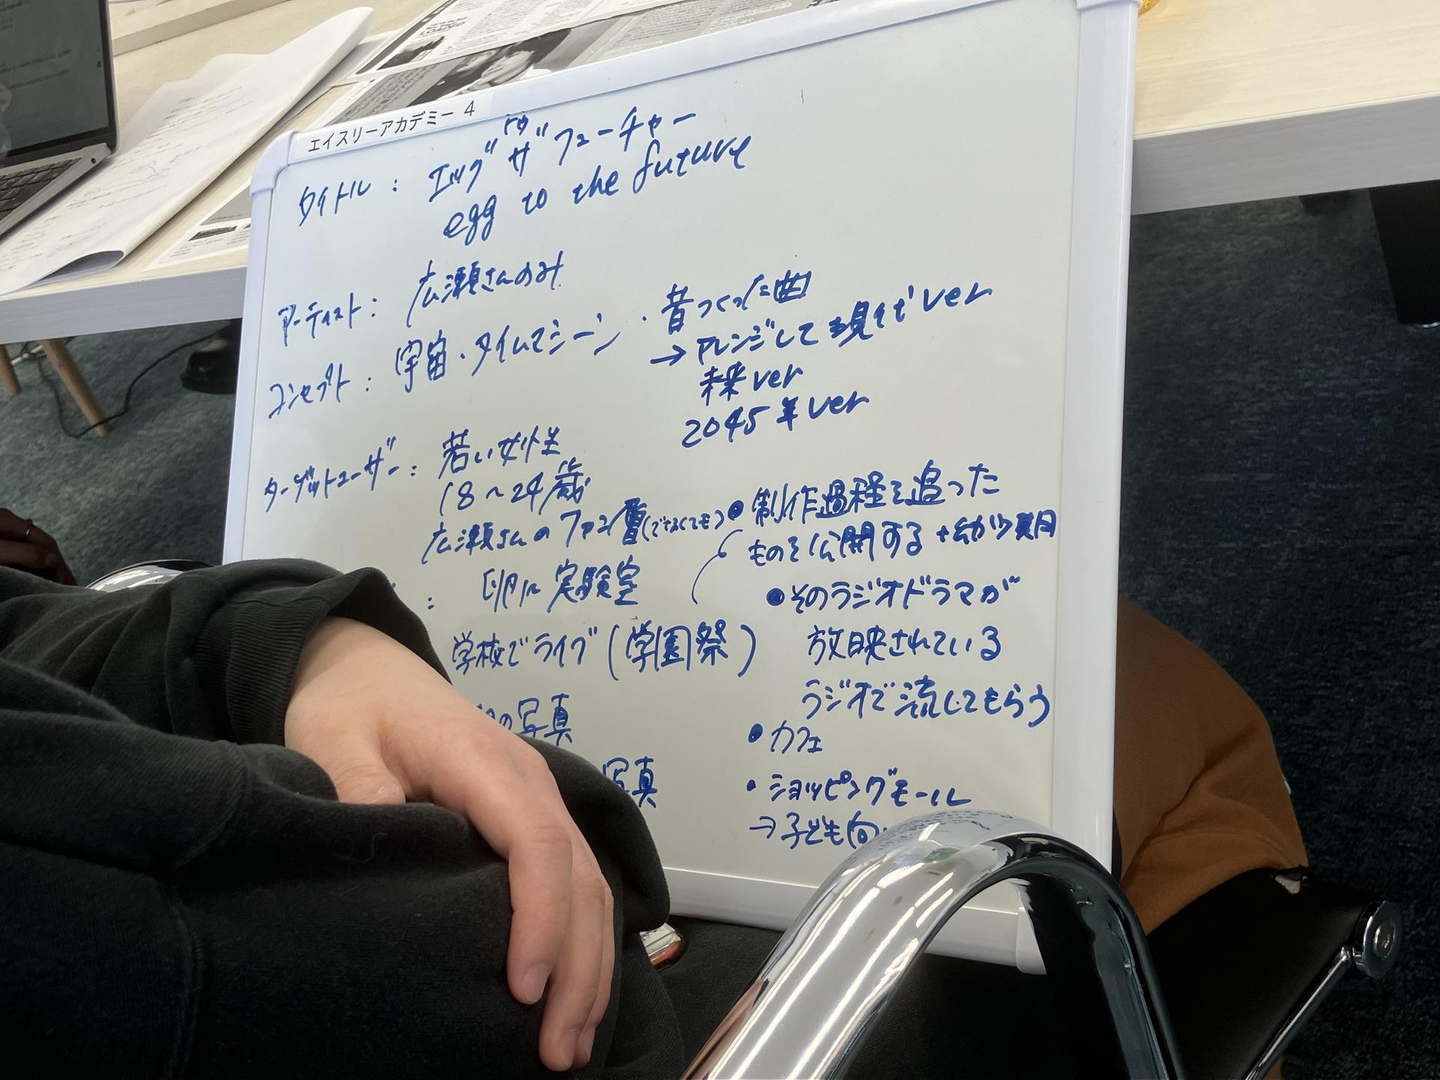 エイスリーアカデミー 4
タイトル : エッグ ザ フューチャー
egg to the future
アーティスト : 広瀬さんのみ
コンセプト : 宇宙・タイムマシーン
・昔つくった曲
→ アレンジして 現代ver
未来ver
2045年ver
ターゲットユーザー : 若い女性
18〜24歳
広瀬さんのファン層(でなくても)
: 卵に 実験室
学校でライブ (学園祭)
の写真
写真
● 制作過程を追った
ものを公開する +幼少期
● そのラジオドラマが
放映されている
ラジオで流してもらう
・カフェ
・ショッピングモール
→ 子ども向